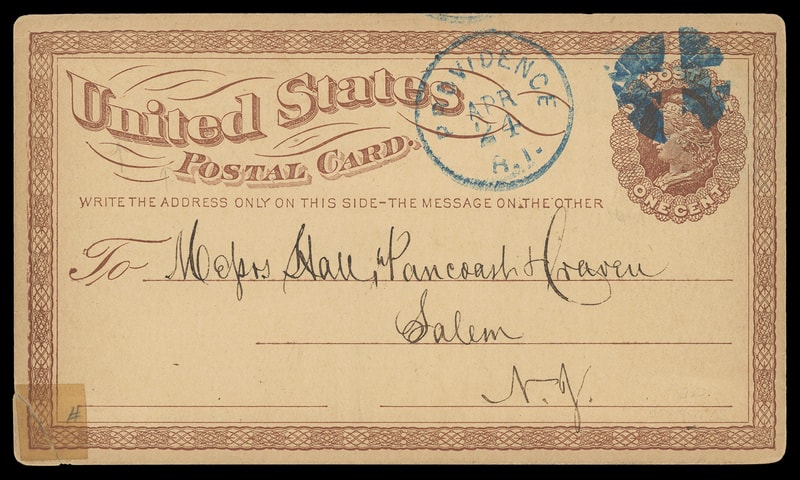 United States
POSTAL CARD.
PROVIDENCE
APR
24
R.I.
POST
ONE CENT
WRITE THE ADDRESS ONLY ON THIS SIDE-THE MESSAGE ON THE OTHER
To Messrs Hall, Pancoast & Craven
Salem
N.J.